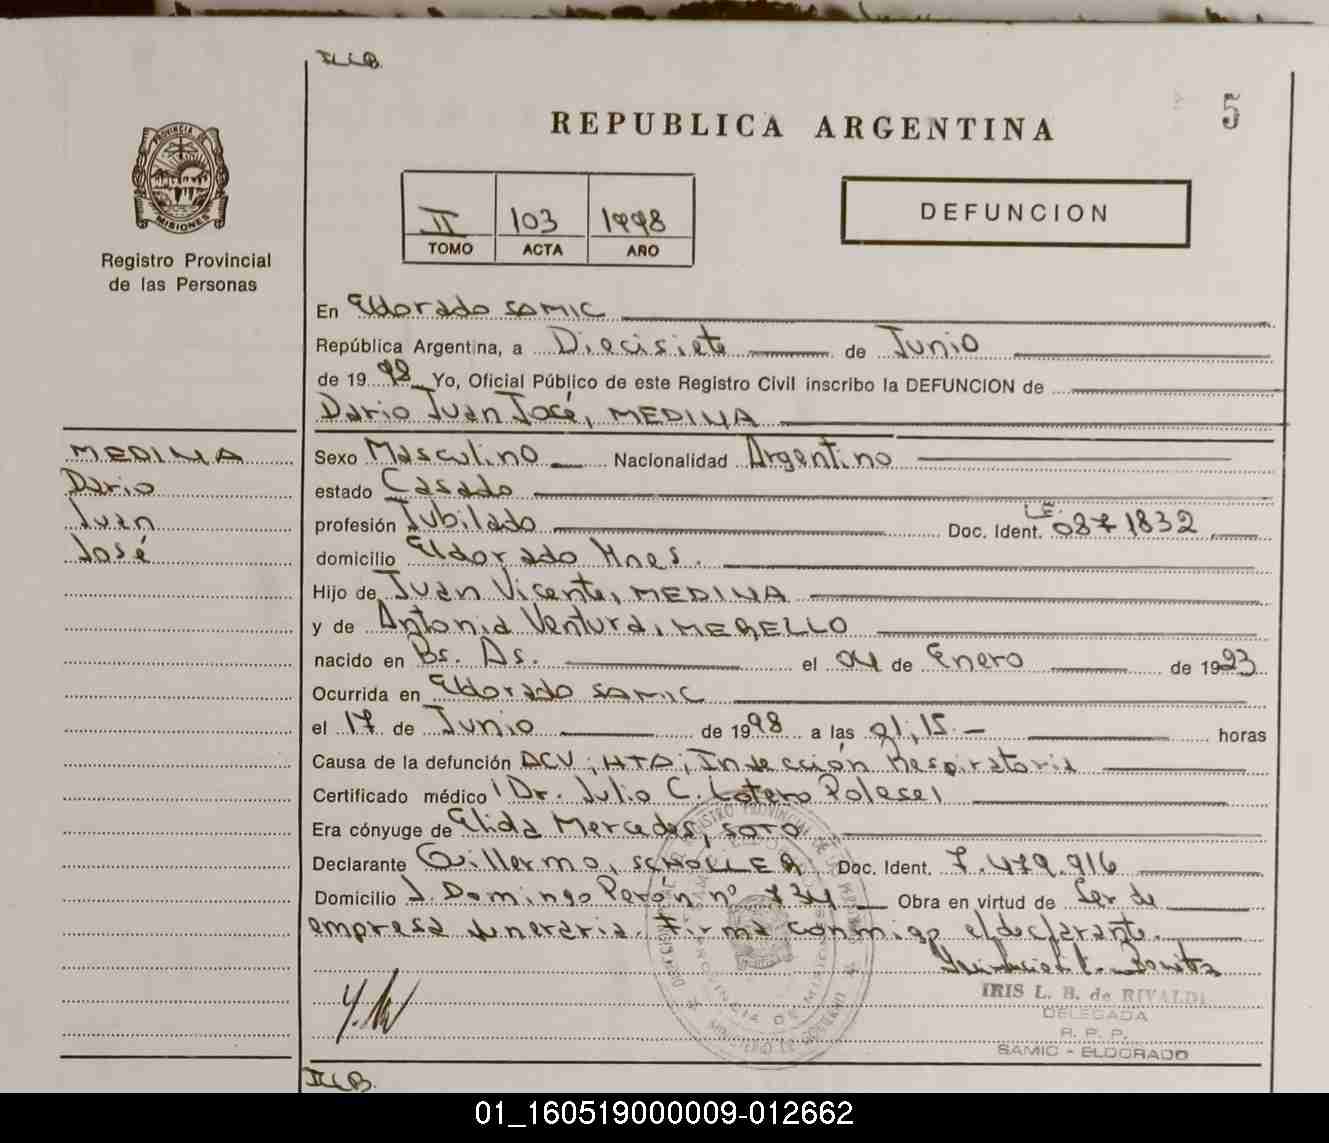 ILLB.
5
REPUBLICA ARGENTINA
PROVINCIA DE
MISIONES
Registro Provincial
de las Personas
II 103 1998
TOMO ACTA AÑO
DEFUNCION
En Eldorado SAMIC
República Argentina, a Diecisiete de Junio
de 19 98 Yo, Oficial Público de este Registro Civil inscribo la DEFUNCION de
Dario Juan José, MEDINA
MEDINA
Dario
Juan
José
Sexo Masculino Nacionalidad Argentino
estado Casado
profesión Jubilado Doc. Ident. LE 0871832
domicilio Eldorado Mnes.
Hijo de Juan Vicente, MEDINA
y de Antonia Ventura, MERELLO
nacido en Bs. As. el 04 de Enero de 1923
Ocurrida en Eldorado SAMIC
el 17 de Junio de 1998 a las 21,15.- horas
Causa de la defunción ACV; HTA; Infección Respiratoria
Certificado médico Dr. Julio C. Lotero Polesel
Era cónyuge de Elida Mercedes, SOTO
Declarante Guillermo, SCHOLLER Doc. Ident. 7.479.916
Domicilio J. Domingo Perón nº 734 Obra en virtud de Ser de
empresa funeraria. Firma conmigo el declarante.
IRIS L. B. de RIVALDI
DELEGADA
R. P. P.
SAMIC - ELDORADO
ILLB.
01_160519000009-012662